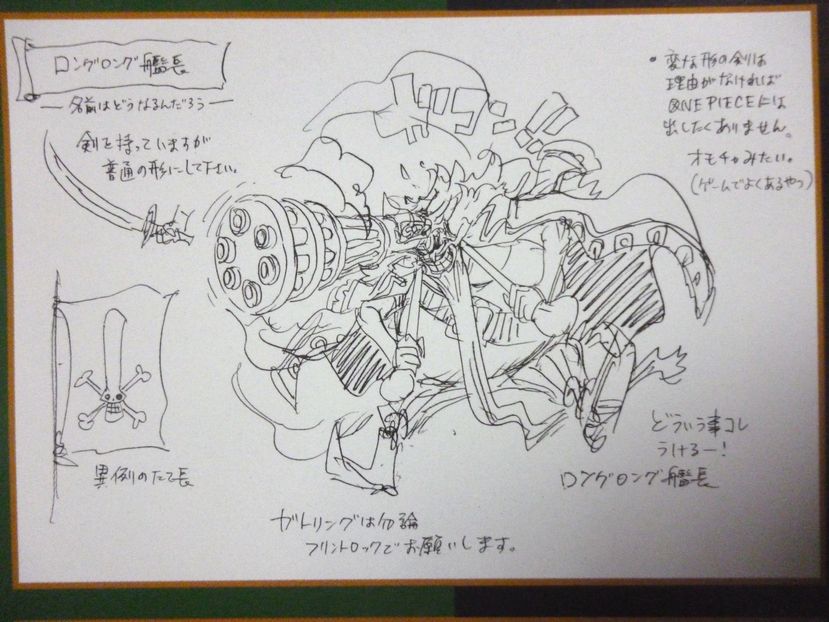 ロングロング艦長
― 名前はどうなるんだろう ―
剣を持っていますが
普通の形にして下さい。
ガシーン!!
• 変な形の剣は
理由がなければ
ONE PIECEには
出したくありません。
オモチャみたい。
(ゲームでよくあるやつ)
異例のたて長
どういう事コレ
うけるー!
ロングロング艦長
ガトリングは勿論
フリントロックでお願いします。